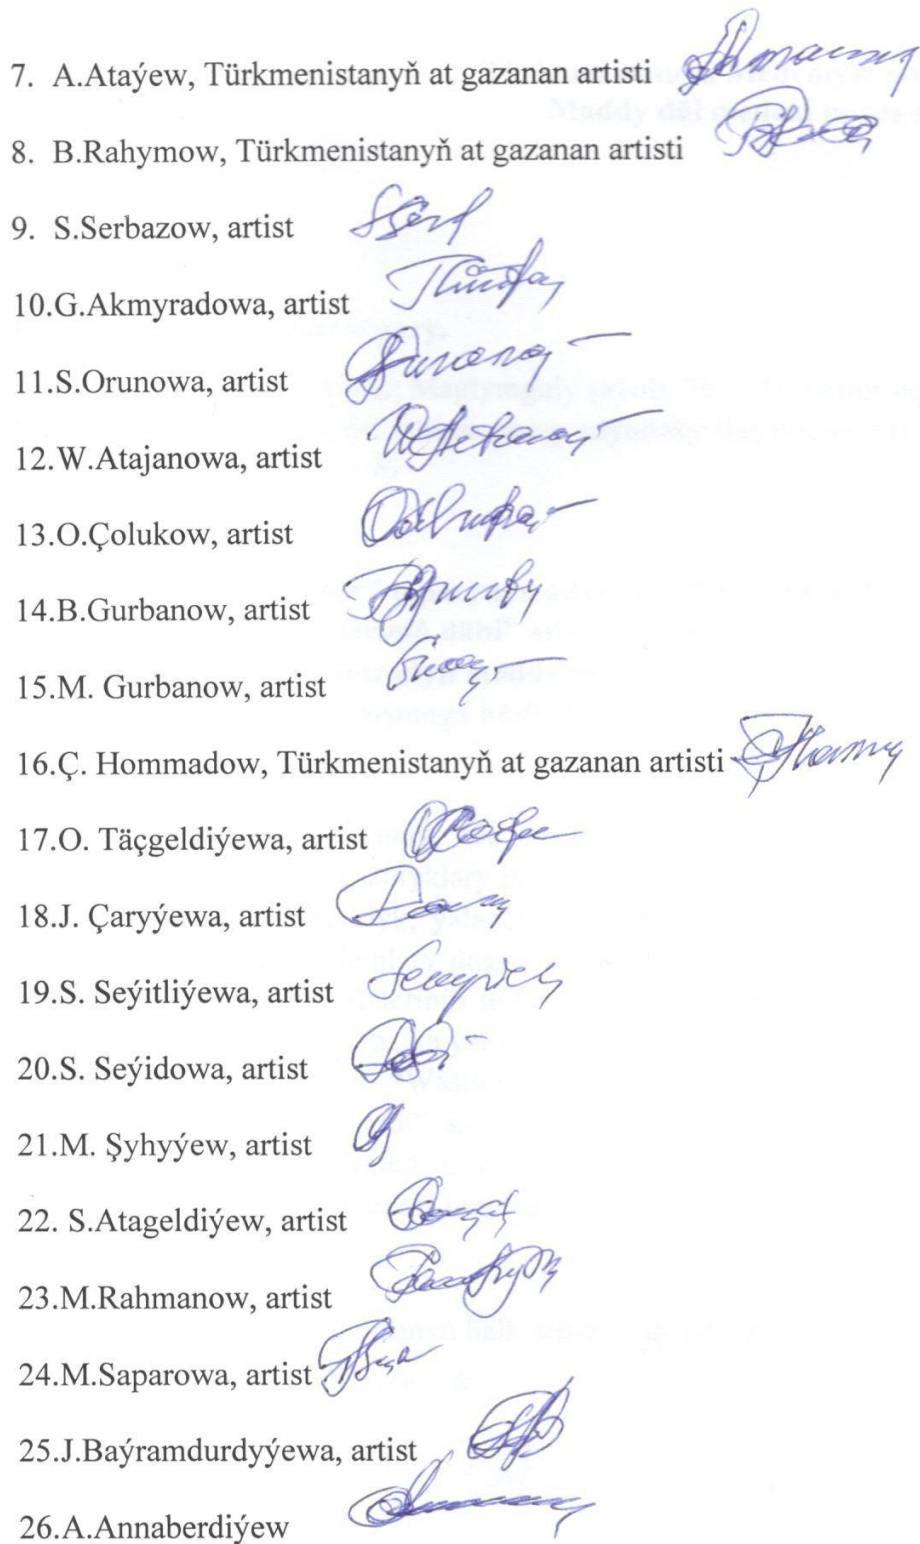 7. A.Ataýew, Türkmenistanyň at gazanan artisti
8. B.Rahymow, Türkmenistanyň at gazanan artisti
9. S.Serbazow, artist
10.G.Akmyradowa, artist
11.S.Orunowa, artist
12.W.Atajanowa, artist
13.O.Çolukow, artist
14.B.Gurbanow, artist
15.M. Gurbanow, artist
16.Ç. Hommadow, Türkmenistanyň at gazanan artisti
17.O. Täçgeldiýewa, artist
18.J. Çaryýewa, artist
19.S. Seýitliýewa, artist
20.S. Seýidowa, artist
21.M. Şyhyýew, artist
22. S.Atageldiýew, artist
23.M.Rahmanow, artist
24.M.Saparowa, artist
25.J.Baýramdurdyýewa, artist
26.A.Annaberdiýew